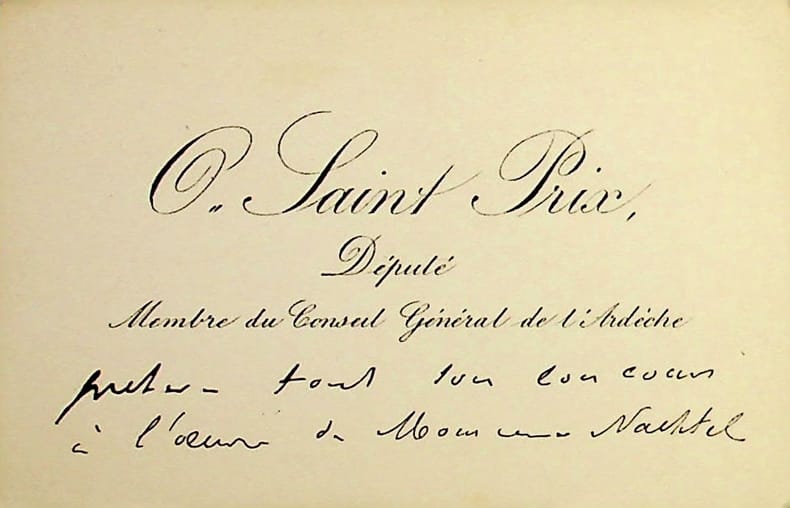 O. Saint Prix,
Député
Membre du Conseil Général de l'Ardèche
prêtera tout son concours
à l'œuvre de Monsieur Nachtel